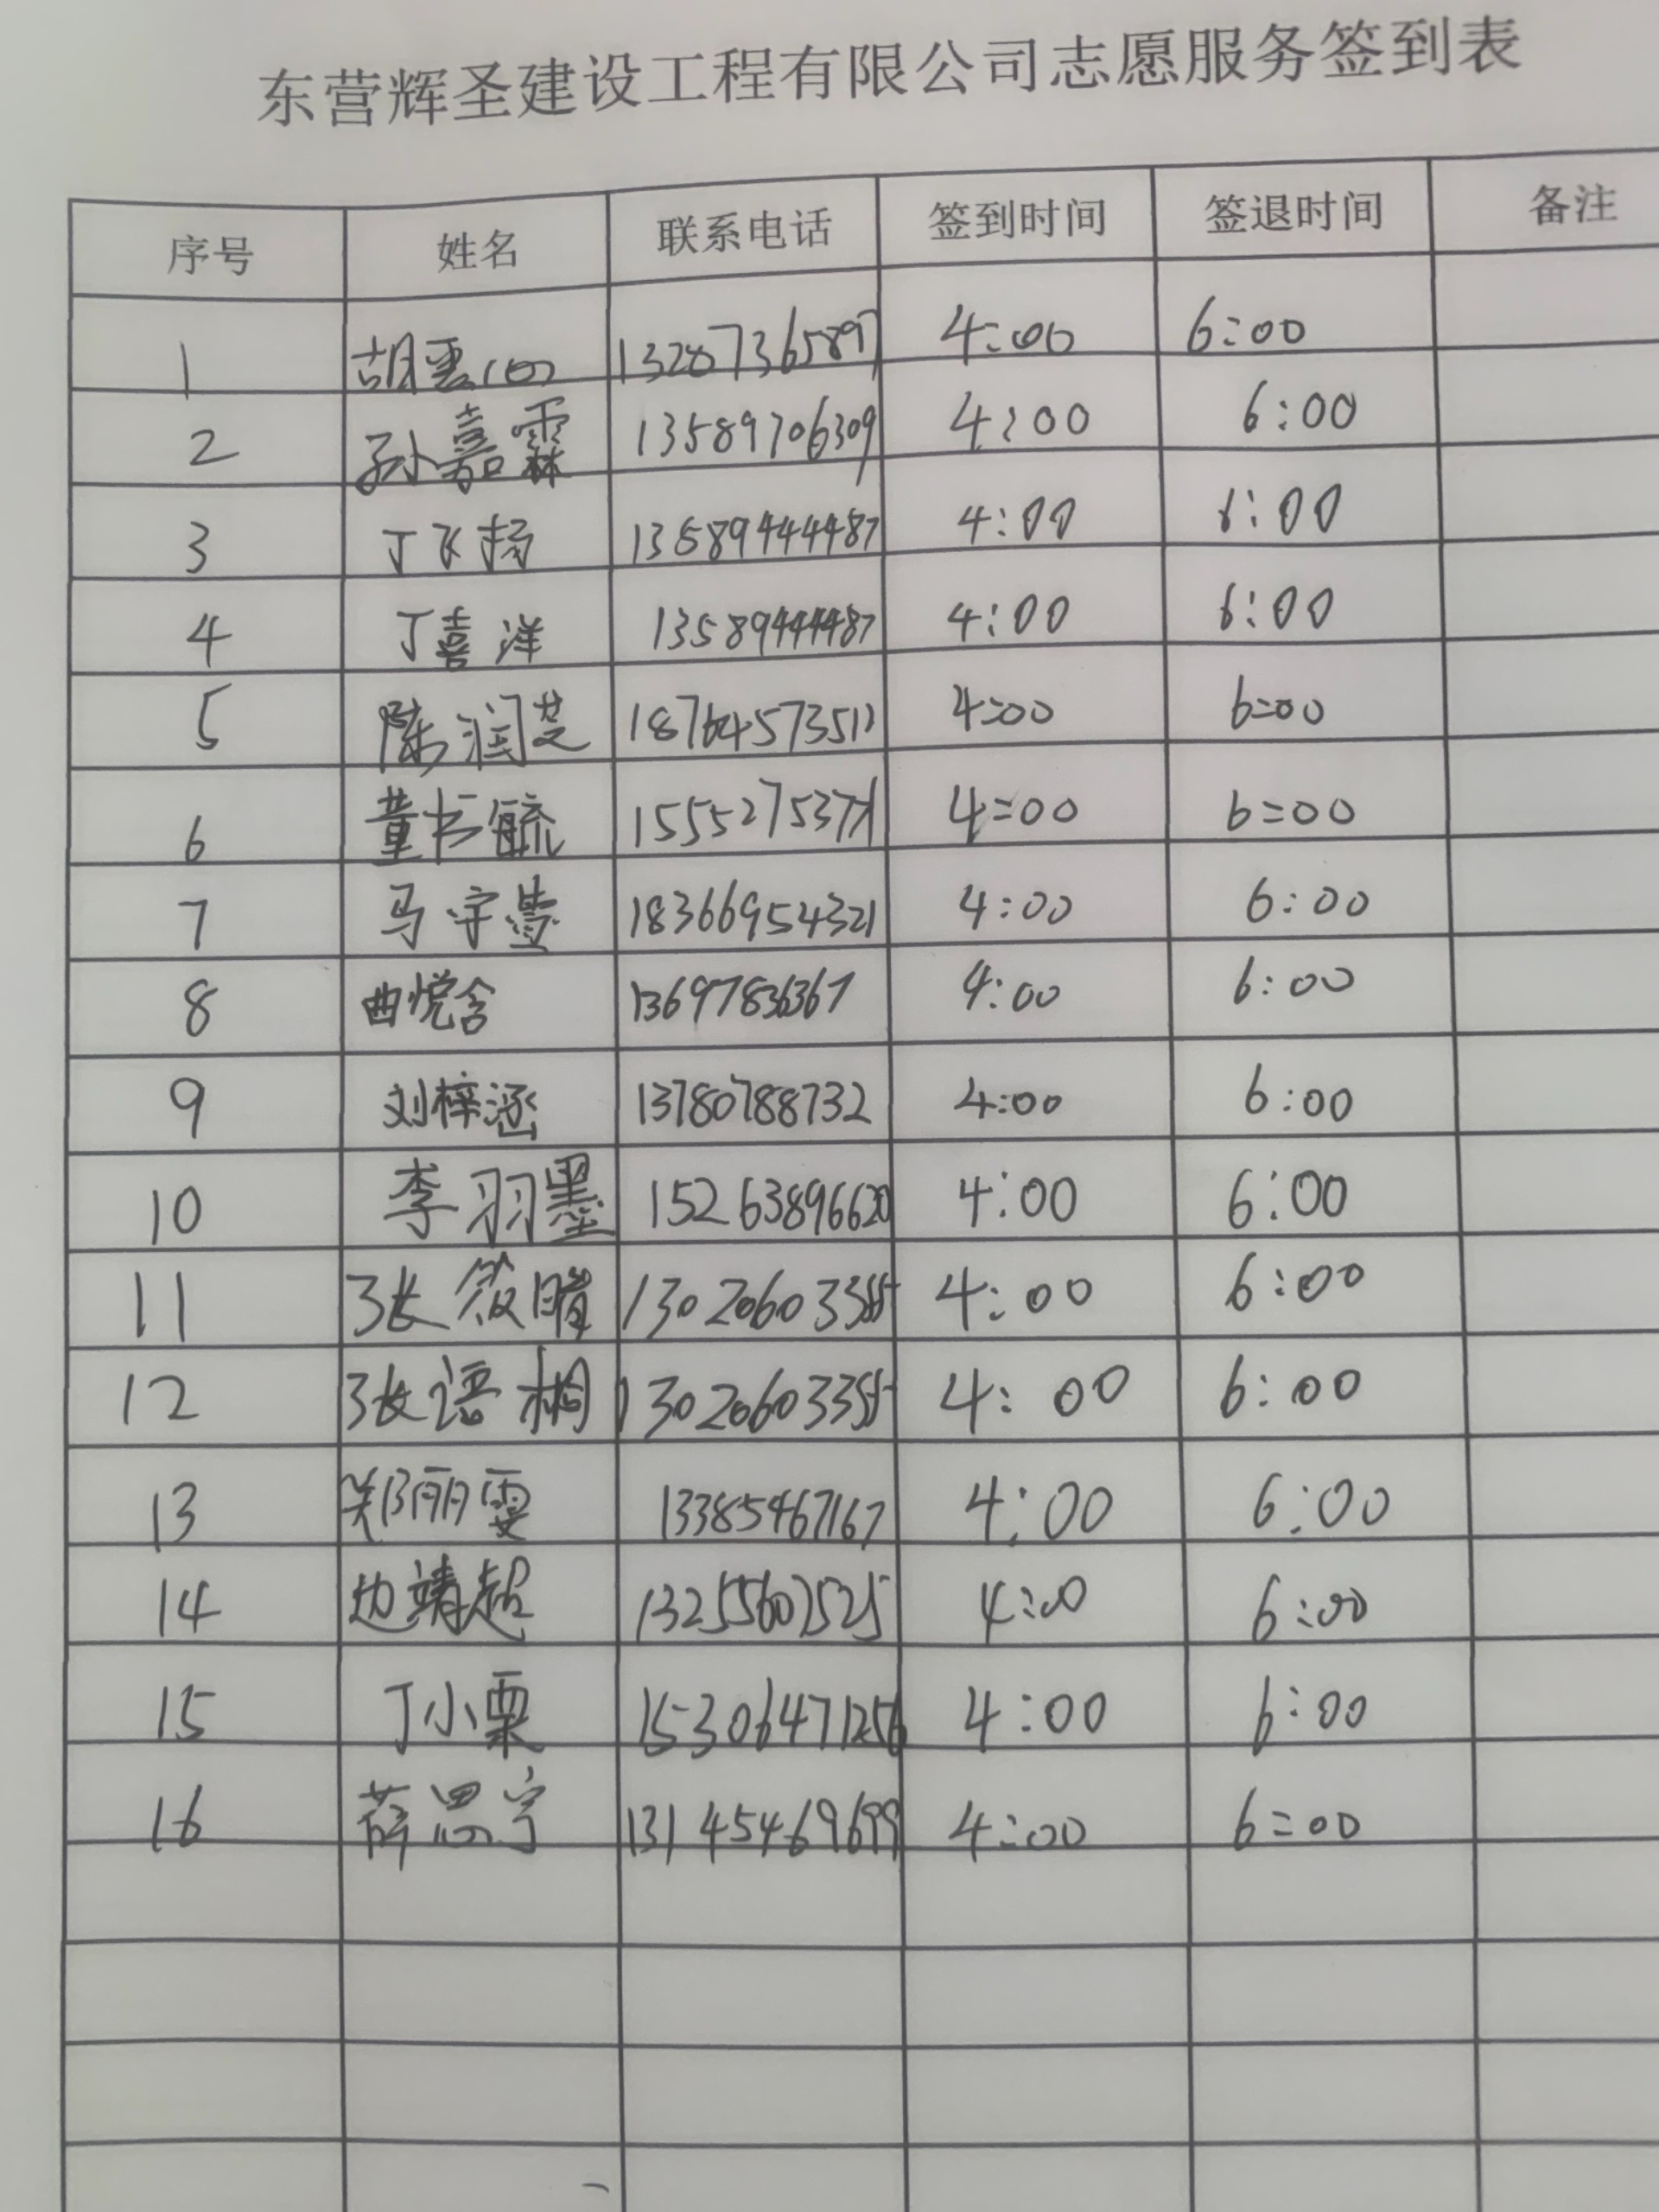 东营辉圣建设工程有限公司志愿服务签到表
序号 姓名 联系电话 签到时间 签退时间 备注
1 胡 13287365897 4:00 6:00
2 孙嘉霖 13589706309 4:00 6:00
3 丁飞扬 13589444487 4:00 6:00
4 丁喜洋 13589444487 4:00 6:00
5 陈润芝 18764573511 4:00 6:00
6 董书毓 4:00 6:00
7 马宇 18366954321 4:00 6:00
8 曲悦含 13697836367 4:00 6:00
9 刘梓涵 13780788732 4:00 6:00
10 李羽墨 15263896620 4:00 6:00
11 张筱晴 4:00 6:00
12 张语桐 4:00 6:00
13 郑丽雯 13385467167 4:00 6:00
14 边靖超 13255607525 4:00 6:00
15 丁小栗 15306471256 4:00 6:00
16 薛思宇 13145469699 4:00 6:00